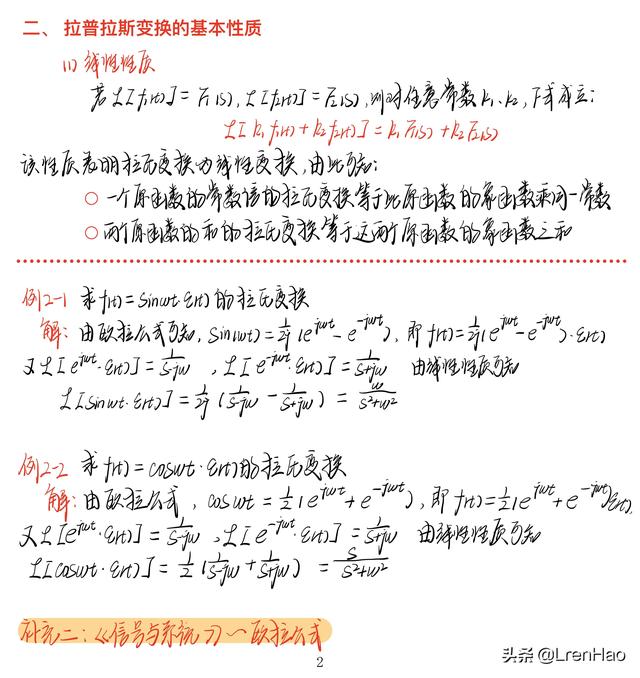 二、拉普拉斯变换的基本性质
(1) 线性性质
若 ℒ[f₁(t)] = F₁(s), ℒ[f₂(t)] = F₂(s), 则对任意常数 k₁、k₂, 下式成立:
ℒ[k₁f₁(t) + k₂f₂(t)] = k₁F₁(s) + k₂F₂(s)
该性质表明拉氏变换为线性变换, 由此可知:
○ 一个原函数的常数倍的拉氏变换等于此原函数的象函数乘同一常数
○ 两个原函数的和的拉氏变换等于这两个原函数的象函数之和
例2-1 求 f(t) = sinωt·ε(t) 的拉氏变换
解: 由欧拉公式可知, sin(ωt) = 1/2j (e^{jωt} - e^{-jωt}), 即 f(t) = 1/2j (e^{jωt} - e^{-jωt})·ε(t)
又 ℒ[e^{jωt}·ε(t)] = 1/(s-jω) , ℒ[e^{-jωt}·ε(t)] = 1/(s+jω) 由线性性质可知
ℒ[sinωt·ε(t)] = 1/2j (1/(s-jω) - 1/(s+jω)) = ω/(s²+ω²)
例2-2 求 f(t) = cosωt·ε(t) 的拉氏变换
解: 由欧拉公式, cosωt = 1/2 (e^{jωt} + e^{-jωt}), 即 f(t) = 1/2 (e^{jωt} + e^{-jωt})ε(t),
又 ℒ[e^{jωt}·ε(t)] = 1/(s-jω) , ℒ[e^{-jωt}·ε(t)] = 1/(s+jω) 由线性性质可知
ℒ[cosωt·ε(t)] = 1/2 (1/(s-jω) + 1/(s+jω)) = s/(s²+ω²)
补充二:《信号与系统》— 欧拉公式
2
头条 @LrenHao